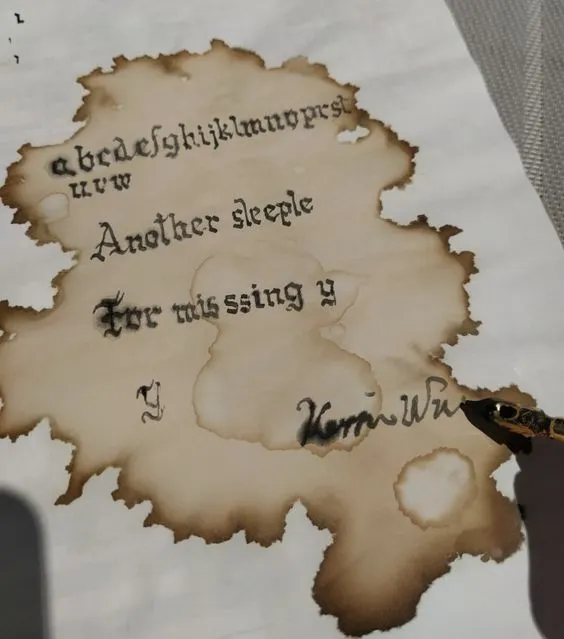 abcdefghijklmnoprst
uvw
Another sleeple
For mis ssing y
y